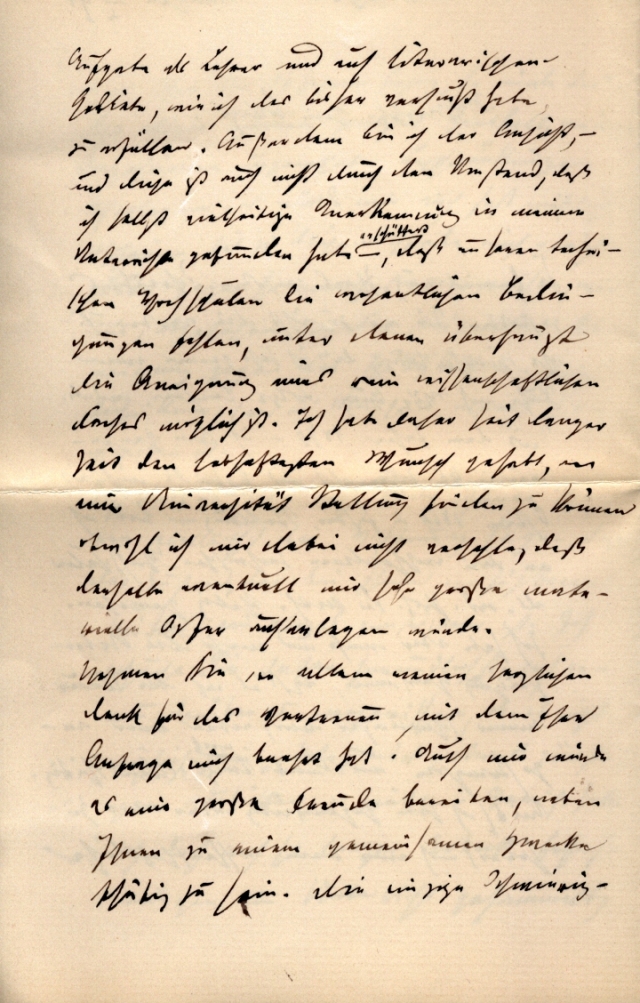 Aufgabe als Lehrer und auf literarischem
Gebiete, wie ich das bisher versucht habe,
zu erfüllen. Außerdem bin ich der Ansicht, –
und diese ist auch nicht durch den Umstand, daß
ich selbst vielseitige Anerkennung in meinem
Unterricht gefunden habe erschüttert, daß unseren techni-
schen Hochschulen die wesentlichen Bedin-
gungen fehlen, unter denen überhaupt
die Aneignung eines rein wissenschaftlichen
Faches möglich ist. Ich habe daher seit langer
Zeit den lebhaftesten Wunsch gehabt, an
einer Universität Stellung finden zu können
obwohl ich mir dabei nicht verhehle, daß
derselbe eventuell mir sehr große mate-
rielle Opfer auferlegen würde.
Nehmen Sie vor allem meinen herzlichen
Dank für das Vertrauen, mit dem Ihre
Anfrage mich beehrt hat. Auch mir würde
es eine große Freude bereiten, neben
Ihnen zu einem gemeinsamen Zwecke
thätig zu sein. Die einzige Schwierig-